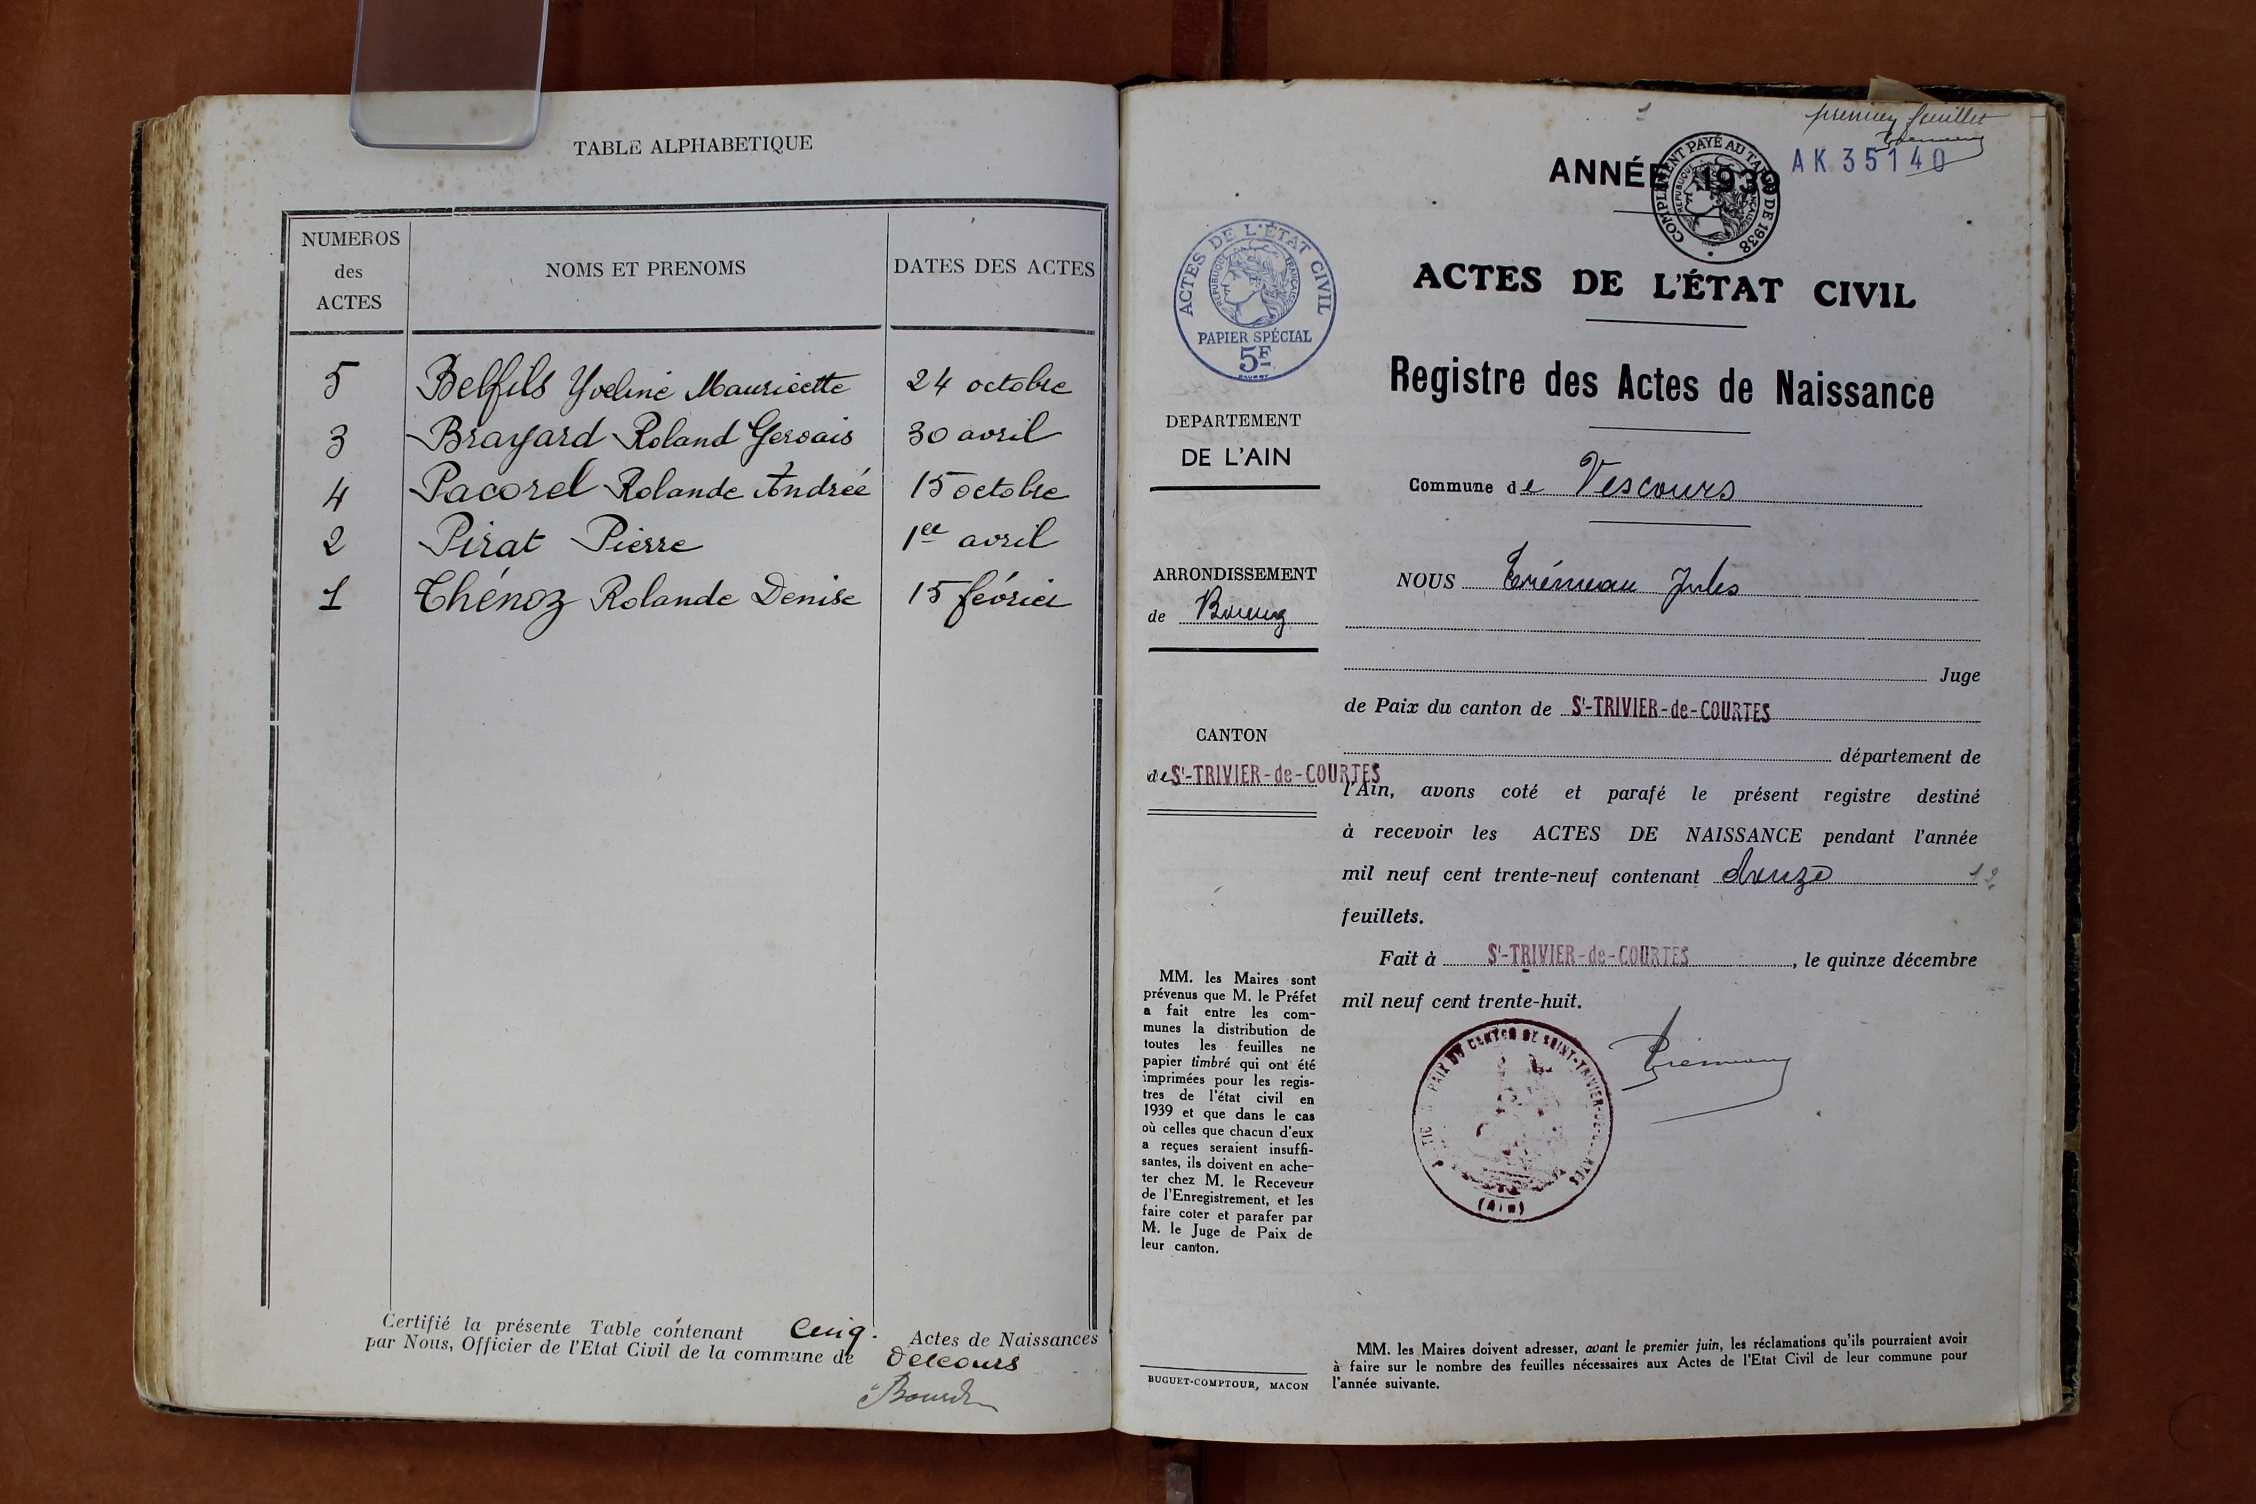 TABLE ALPHABETIQUE
NUMEROS
des
ACTES
NOMS ET PRENOMS
DATES DES ACTES
5 Belfils Yveline Mauricette 24 octobre
3 Brayard Roland Gervais 30 avril
4 Pacorel Rolande Andrée 15 octobre
2 Pirat Pierre 1er avril
1 Thénoz Rolande Denise 15 février
Certifié la présente Table contenant Cinq. Actes de Naissances
par Nous, Officier de l'Etat Civil de la commune de Vescours
1
premier feuillet
AK 35140
ANNÉE 1939
COMPLÉMENT PAYÉ AU TARIF DE 1938
RÉPUBLIQUE FRANÇAISE
ACTES DE L'ÉTAT CIVIL
RÉPUBLIQUE FRANÇAISE
PAPIER SPÉCIAL
5F
DEPARTEMENT
DE L'AIN
ARRONDISSEMENT
de Bourg
CANTON
de St-TRIVIER-de-COURTES
MM. les Maires sont
prévenus que M. le Préfet
a fait entre les com-
munes la distribution de
toutes les feuilles ne
papier timbré qui ont été
imprimées pour les regis-
tres de l'état civil en
1939 et que dans le cas
où celles que chacun d'eux
a reçues seraient insuffi-
santes, ils doivent en ache-
ter chez M. le Receveur
de l'Enregistrement, et les
faire coter et parafer par
M. le Juge de Paix de
leur canton.
BUGUET-COMPTOUR, MACON
ACTES DE L'ÉTAT CIVIL
Registre des Actes de Naissance
Commune de Vescours
NOUS Trémeau Jules
Juge
de Paix du canton de St-TRIVIER-de-COURTES
département de
l'Ain, avons coté et parafé le présent registre destiné
à recevoir les ACTES DE NAISSANCE pendant l'année
mil neuf cent trente-neuf contenant douze 12
feuillets.
Fait à St-TRIVIER-de-COURTES, le quinze décembre
mil neuf cent trente-huit.
PAIX DU CANTON DE SAINT-TRIVIER-DE-COURTES
(Ain)
Trémeau
MM. les Maires doivent adresser, avant le premier juin, les réclamations qu'ils pourraient avoir
à faire sur le nombre des feuilles nécessaires aux Actes de l'Etat Civil de leur commune pour
l'année suivante.